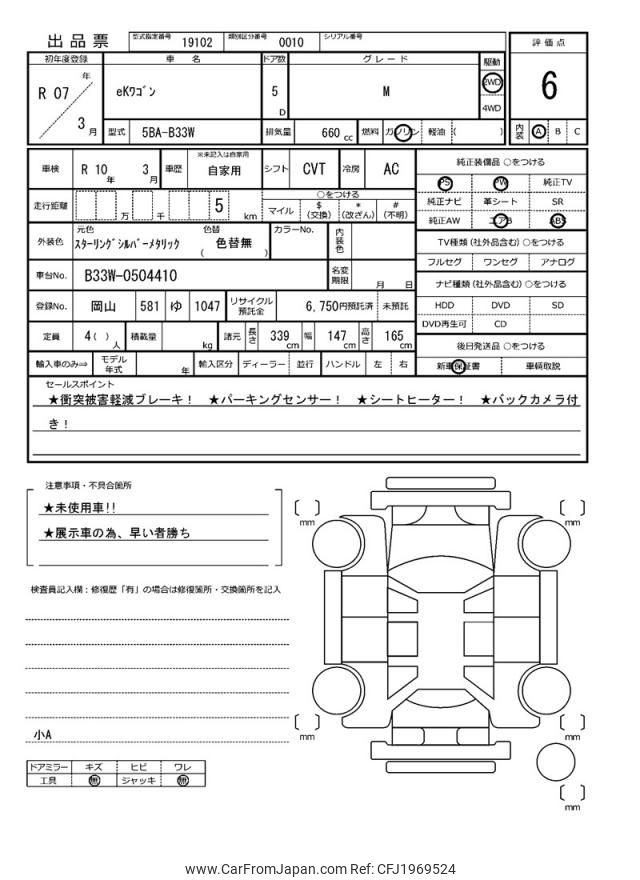 出品票 型式指定番号 19102 類別区分番号 0010 シリアル番号
初年度登録 車名 ドア数 グレード 駆動 評価点
R 07 年 3 月 eKワゴン 5 D M 2WD 4WD 6
型式 5BA-B33W 排気量 660 cc 燃料 ガソリン 軽油 ( ) 内装 A B C
車検 R 10 年 3 月 車歴 ※未記入は自家用 自家用 シフト CVT 冷房 AC 純正装備品 ○をつける
PS PW 純正TV
走行距離 万 千 5 km ○をつける 純正ナビ 革シート SR
マイル $(交換) *(改ざん) #(不明) 純正AW エアB ABS
外装色 元色 スターリングシルバーメタリック 色替 ( 色替無 ) カラーNo. 内装色 TV種類 (社外品含む) ○をつける
フルセグ ワンセグ アナログ
車台No. B33W-0504410 名変期限 月 日 ナビ種類 (社外品含む) ○をつける
登録No. 岡山 581 ゆ 1047 リサイクル預託金 6,750円預託済 未預託 HDD DVD SD
DVD再生可 CD
定員 4( ) 人 積載量 kg 諸元 長さ 339 cm 幅 147 cm 高さ 165 cm 後日発送品 ○をつける
輸入車のみ⇒ モデル年式 年 輸入区分 ディーラー 並行 ハンドル 左 右 新車保証書 車輌取説
セールスポイント
★衝突被害軽減ブレーキ! ★パーキングセンサー! ★シートヒーター! ★バックカメラ付
き!
注意事項・不具合箇所
★未使用車!!
★展示車の為、早い者勝ち
検査員記入欄：修復歴「有」の場合は修復箇所・交換箇所を記入
小A
ドアミラー キズ ヒビ ワレ
工具 無 ジャッキ 無
mm mm
mm mm
mm
www.CarFromJapan.com Ref: CFJ1969524